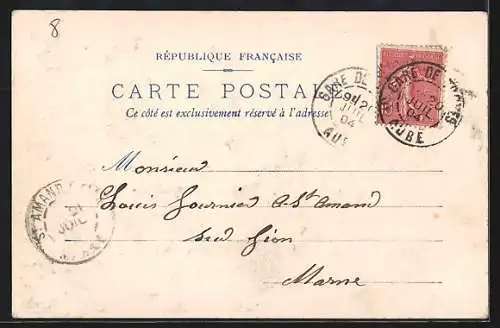 8
RÉPUBLIQUE FRANÇAISE
CARTE POSTALE
Ce côté est exclusivement réservé à l'adresse
GARE DE
JUIL
04
AUBE
GARE DE
20
JUIL
04
AUBE
Monsieur
Louis Fournier a St Amand
sur Fion
Marne
ST AMAND
21
JUIL